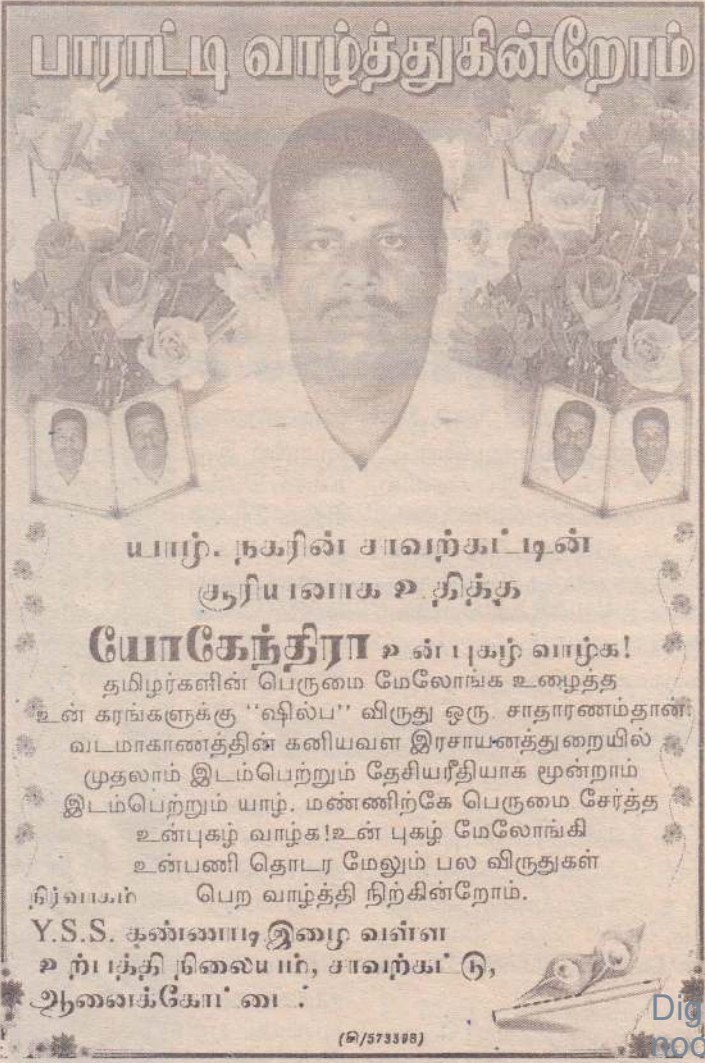 பாராட்டி வாழ்த்துகின்றோம்
யாழ். நகரின் சாவற்கட்டின்
சூரியனாக உதித்த
யோகேந்திரா உன் புகழ் வாழ்க!
தமிழர்களின் பெருமை மேலோங்க உழைத்த
உன் கரங்களுக்கு "ஷில்ப" விருது ஒரு சாதாரணம்தான்
வடமாகாணத்தின் கனியவள இரசாயனத்துறையில்
முதலாம் இடம்பெற்றும் தேசியரீதியாக மூன்றாம்
இடம்பெற்றும் யாழ். மண்ணிற்கே பெருமை சேர்த்த
உன்புகழ் வாழ்க!உன் புகழ் மேலோங்கி
உன்பணி தொடர மேலும் பல விருதுகள்
பெற வாழ்த்தி நிற்கின்றோம்.
நிர்வாகம்
Y.S.S. கண்ணாடி இழை வள்ள
உற்பத்தி நிலையம், சாவற்கட்டு,
ஆனைக்கோட்டை.
573398)
Dig
noo